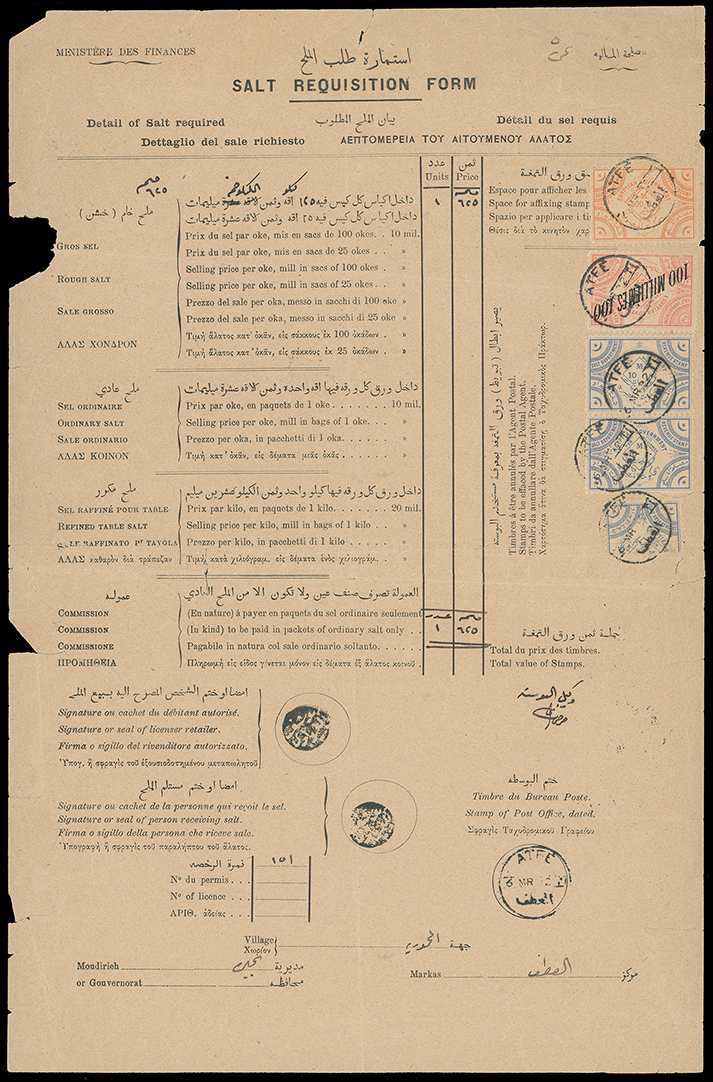 MINISTÈRE DES FINANCES
استمارة طلب الملح
SALT REQUISITION FORM
Detail of Salt required
بيان الملح المطلوب
Détail du sel requis
Dettaglio del sale richiesto
ΛΕΠΤΟΜΕΡΕΙΑ ΤΟΥ ΑΙΤΟΥΜΕΝΟΥ ΑΛΑΤΟΣ
عدد
Units
ثمن
Price
١
٦٢٥
ملح خام (خشن)
GROS SEL
ROUGH SALT
SALE GROSSO
ΑΛΑΣ ΧΟΝΔΡΟΝ
Prix du sel par oke, mis en sacs de 100 okes. . 10 mil.
Prix du sel par oke, mis en sacs de 25 okes . . »
Selling price per oke, mill in sacs of 100 okes . »
Selling price per oke, mill in sacs of 25 okes . . »
Prezzo del sale par oke, messo in sacchi di 100 oke »
Prezzo del sale par oke, messo in sacchi di 25 oke »
Τιμὴ ἅλατος κατ' ὀκᾶν, εἰς σάκκους ἐκ 100 ὀκάδων . »
Τιμὴ ἅλατος κατ' ὀκᾶν, εἰς σάκκους ἐκ 25 ὀκάδων . »
ملح عادي
SEL ORDINAIRE
ORDINARY SALT
SALE ORDINARIO
ΑΛΑΣ ΚΟΙΝΟΝ
Prix par oke, en paquets de 1 oke . . . . . . . 10 mil.
Selling price per oke, mill in bags of 1 oke. . . »
Prezzo per oka, in pacchetti di 1 oka. . . . . . »
Τιμὴ κατ' ὀκᾶν, εἰς δέματα μιᾶς ὀκᾶς. . . . . . »
ملح مكرر
SEL RAFFINÉ POUR TABLE
REFINED TABLE SALT
RAFFINATO Pr TAVOLA
ΑΛΑΣ καθαρὸν διὰ τράπεζαν
Prix par kilo, en paquets de 1 kilo. . . . . . . 20 mil.
Selling price per kilo, mill in bags of 1 kilo . . »
Prezzo per kilo, in pacchetti di 1 kilo . . . . . »
Τιμὴ κατὰ χιλιόγραμ. εἰς δέματα ἑνὸς χιλιογράμ. »
عموله
COMMISSION
COMMISSION
COMMISSIONE
ΠΡΟΜΗΘΕΙΑ
العمولة تصرف صنف عين ولا تكون الا من الملح العادي
(En nature) à payer en paquets du sel ordinaire seulement
(In kind) to be paid in packets of ordinary salt only . .
Pagabile in natura col sale ordinario soltanto. . . . . .
Πληρωμὴ εἰς εἶδος γίνεται μόνον εἰς δέματα ἐξ ἅλατος κοινοῦ.
عدد
١
٦٢٥
Espace pour afficher les
Space for affixing stamp
Spazio per applicare i ti
Θέσις διὰ τὸ κινητὸν χαρ
Timbres à être annulés par l'Agent Postal.
Stamps to be effaced by the Postal Agent.
Timbri da annullare dall'Agente Postale.
Χαρτόσημα ἅτινα θὰ στιγματίσῃ ὁ Ταχυδρομικὸς Πράκτωρ.
ATFÉ
100 MILLIEMES 100
ATFÉ
ATFÉ
جملة ثمن ورق التمغة
Total du prix des timbres.
Total value of Stamps.
وكيل البوسته
امضا او ختم الشخص المصرح اليه ببيع الملح
Signature ou cachet du débitant autorisé.
Signature or seal of licenser retailer.
Firma o sigillo del rivenditore autorizzato.
Ὑπογ. ἢ σφραγὶς τοῦ ἐξουσιοδοτημένου μεταπωλητοῦ
امضا او ختم مستلم الملح
Signature ou cachet de la personne qui reçoit le sel.
Signature or seal of person receiving salt.
Firma o sigillo della persona che riceve sale.
Ὑπογραφὴ ἢ σφραγὶς τοῦ παραλήπτου τοῦ ἅλατος.
ختم البوسطه
Timbre du Bureau Poste.
Stamp of Post Office, dated.
Σφραγὶς Ταχυδρομικοῦ Γραφείου
ATFÉ
6 MR
العطف
نمرة الرخصه
١٥١
No du permis . . .
No of licence . . .
ΑΡΙΘ. ἀδείας . . .
Village
Χωρίον
جهة
Moudirieh
مديرية
or Gouvernorat
محافظه
Markas
العطف
مركز